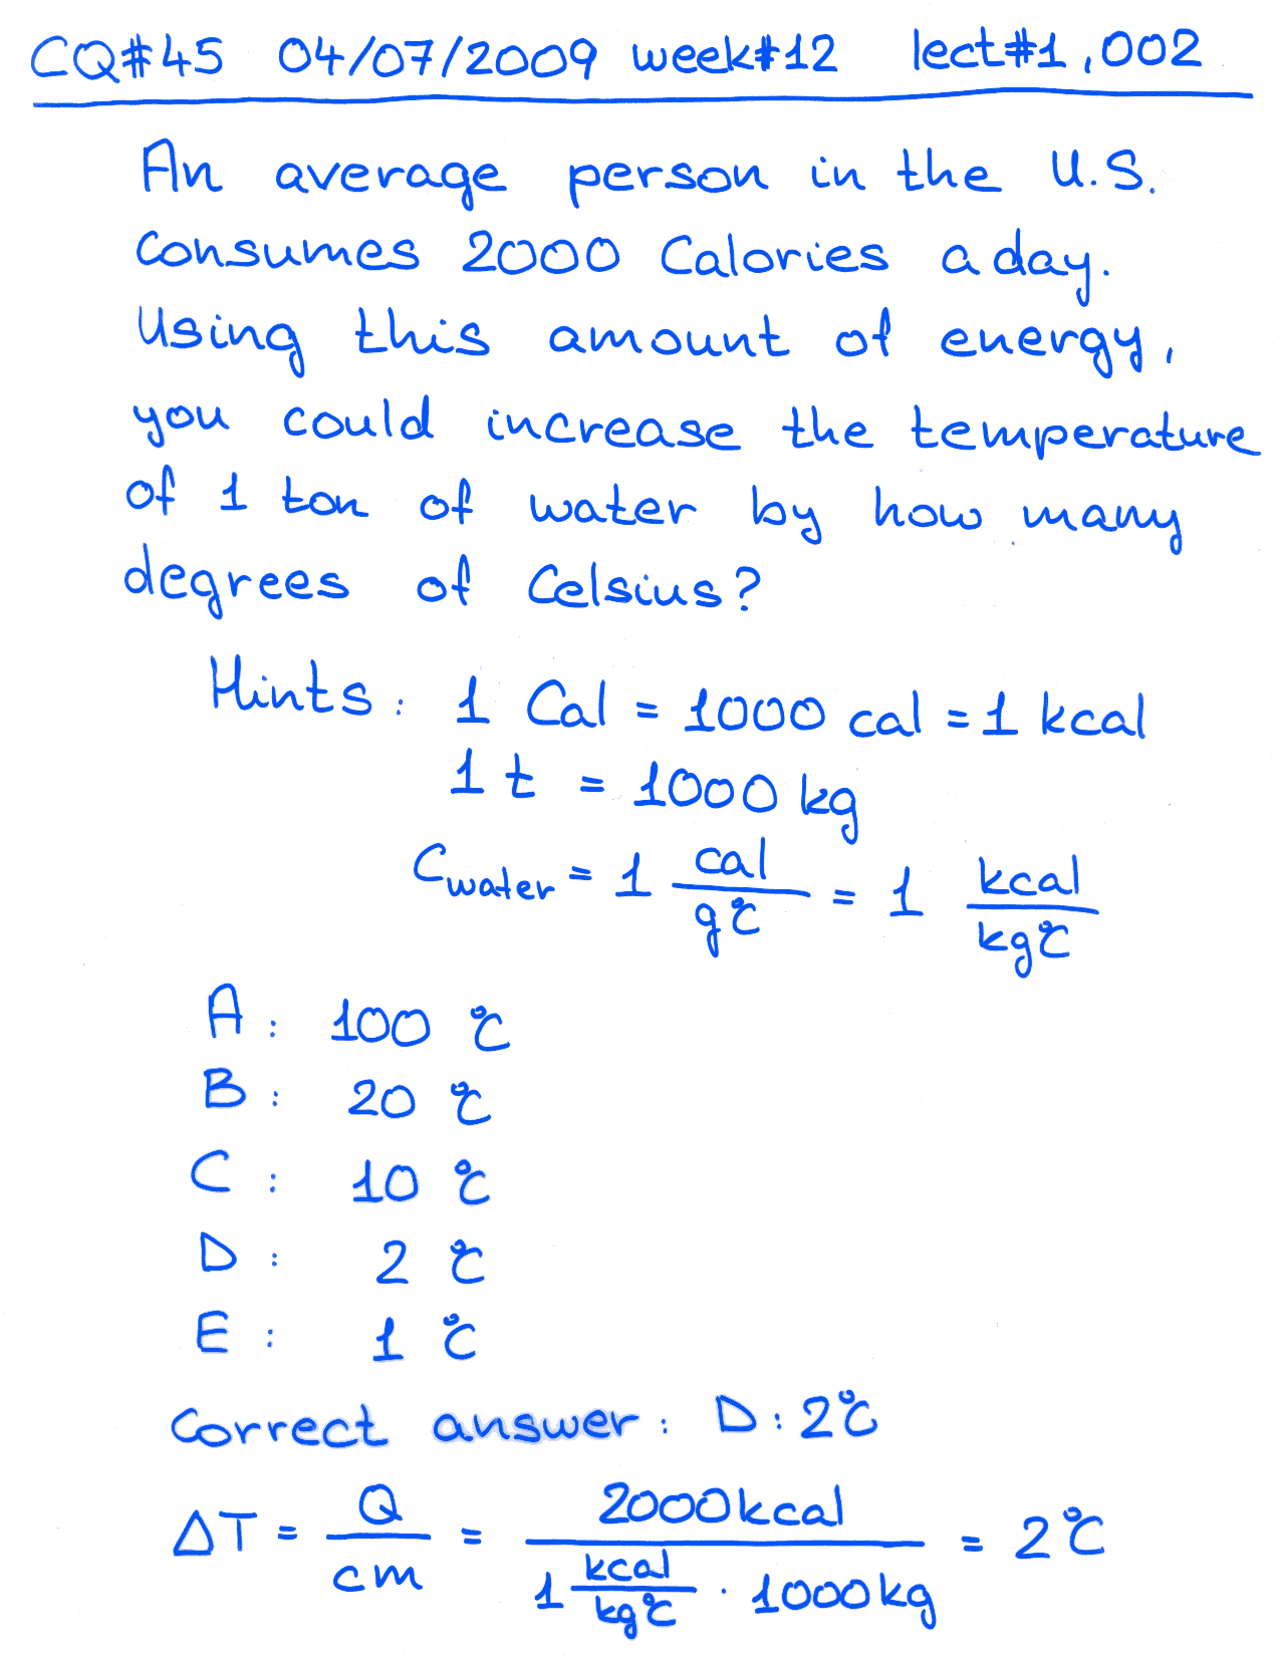 CQ#45 04/07/2009 week#12 lect#1,002
An average person in the U.S.
consumes 2000 Calories a day.
Using this amount of energy,
you could increase the temperature
of 1 ton of water by how many
degrees of Celsius?
Hints: 1 Cal = 1000 cal = 1 kcal
1 t = 1000 kg
C_water = 1 cal/g°C = 1 kcal/kg°C
A: 100 °C
B: 20 °C
C: 10 °C
D: 2 °C
E: 1 °C
Correct answer: D: 2°C
ΔT = Q/cm = 2000kcal/(1 kcal/kg°C · 1000kg) = 2°C